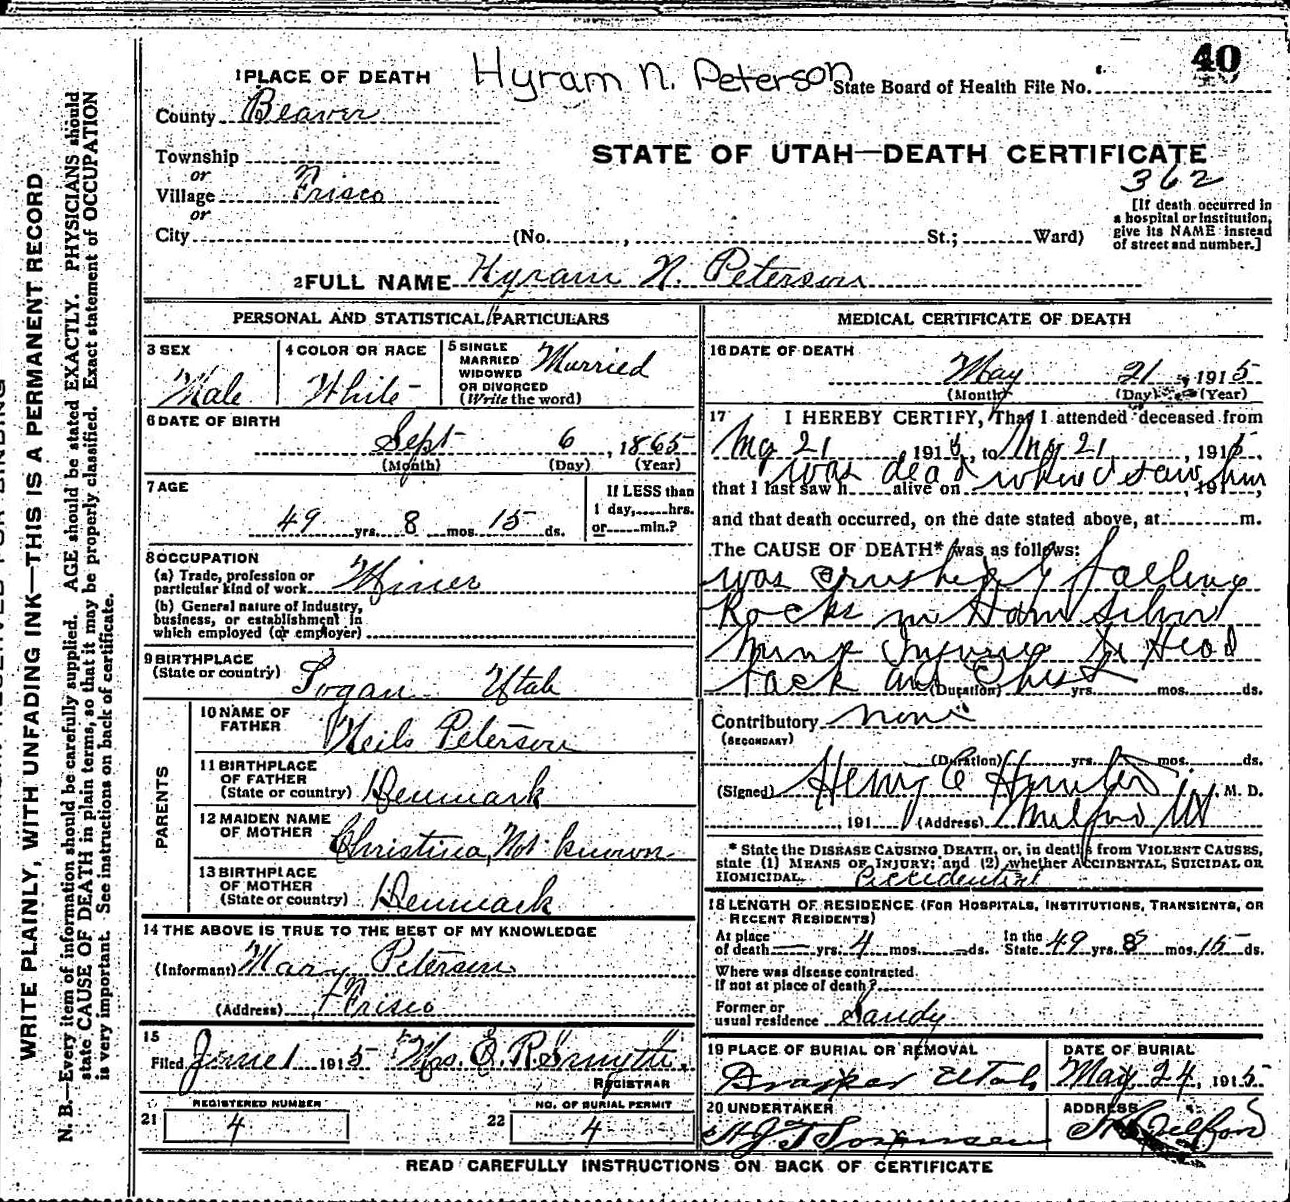 40
1 PLACE OF DEATH Hyram N. Peterson State Board of Health File No.
County Beaver
STATE OF UTAH—DEATH CERTIFICATE
362
Township
or
Village Frisco
or
City (No. , St.; Ward)
[If death occurred in
a hospital or institution,
give its NAME instead
of street and number.]
2 FULL NAME Hyram N. Peterson
PERSONAL AND STATISTICAL PARTICULARS
3 SEX
Male
4 COLOR OR RACE
White
5 SINGLE
MARRIED
WIDOWED
OR DIVORCED
(Write the word)
Married
6 DATE OF BIRTH
Sept 6, 1865
(Month) (Day) (Year)
7 AGE
49 yrs. 8 mos. 15 ds.
If LESS than
1 day, hrs.
or min.?
8 OCCUPATION
(a) Trade, profession or
particular kind of work Miner
(b) General nature of Industry,
business, or establishment in
which employed (or employer)
9 BIRTHPLACE
(State or country) Logan Utah
PARENTS
10 NAME OF
FATHER Neils Peterson
11 BIRTHPLACE
OF FATHER
(State or country) Denmark
12 MAIDEN NAME
OF MOTHER Christina, Not known
13 BIRTHPLACE
OF MOTHER
(State or country) Denmark
14 THE ABOVE IS TRUE TO THE BEST OF MY KNOWLEDGE
(Informant) Mary Peterson
(Address) Frisco
15
Filed June 1 1915 Mrs. E. R. Smyth.
REGISTRAR
21 REGISTERED NUMBER
4
22 NO. OF BURIAL PERMIT
4
MEDICAL CERTIFICATE OF DEATH
16 DATE OF DEATH
May 21, 1915
(Month) (Day) (Year)
17 I HEREBY CERTIFY, That I attended deceased from
May 21, 1915, to May 21, 1915,
was dead when I saw him
that I last saw h alive on , 191 ,
and that death occurred, on the date stated above, at m.
The CAUSE OF DEATH* was as follows:
was crushed by falling
Rocks in Horn Silver
Mine Injuries to Head
back and Chest
(Duration) yrs. mos. ds.
Contributory none
(SECONDARY)
(Duration) yrs. mos. ds.
(Signed) Henry C Hunter, M. D.
, 191 (Address) Milford Ut
* State the DISEASE CAUSING DEATH, or, in deaths from VIOLENT CAUSES,
state (1) MEANS OF INJURY; and (2) whether ACCIDENTAL, SUICIDAL OR
HOMICIDAL. Accidental
18 LENGTH OF RESIDENCE (FOR HOSPITALS, INSTITUTIONS, TRANSIENTS, OR
RECENT RESIDENTS)
At place
of death — yrs. 4 mos. — ds. In the
State 49 yrs. 8 mos. 15 ds.
Where was disease contracted.
If not at place of death?
Former or
usual residence Sandy
19 PLACE OF BURIAL OR REMOVAL
Draper Utah
DATE OF BURIAL
May 24, 1915
20 UNDERTAKER
ADDRESS
Milford
READ CAREFULLY INSTRUCTIONS ON BACK OF CERTIFICATE
WRITE PLAINLY, WITH UNFADING INK—THIS IS A PERMANENT RECORD
N. B.—Every item of information should be carefully supplied. AGE should be stated EXACTLY. PHYSICIANS should
state CAUSE OF DEATH in plain terms, so that it may be properly classified. Exact statement of OCCUPATION
is very important. See instructions on back of certificate.